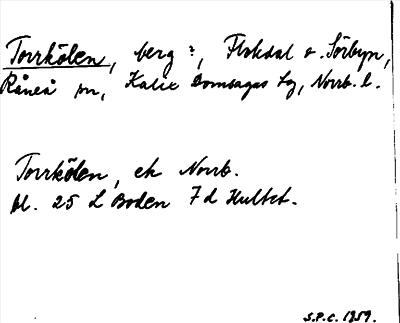 Torrkölen, berg ?, Flokdal o. Sörbyn,
Råneå sn, Kalix Domsagas tg, Norrb. l.
Torrkölen, ek Norrb.
bl. 25 L Boden 7d Hultet.
S.P.C. 1959.